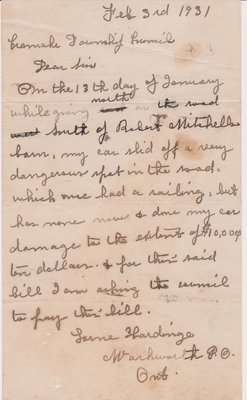 Feb 3rd 1931
Cramahe Township Council
Dear Sir
On the 13th day of January
while going north on the road
south of Robert Mitchells
barn, my car slid off a very
dangerous spot in the road,
which once had a railing, but
has none now & done my car
damage to the extent of $10,00
ten dollars. & for this said
bill I am asking the council
to pay this bill.
Lorne Hardinge
Warkworth P.O.
Ont.